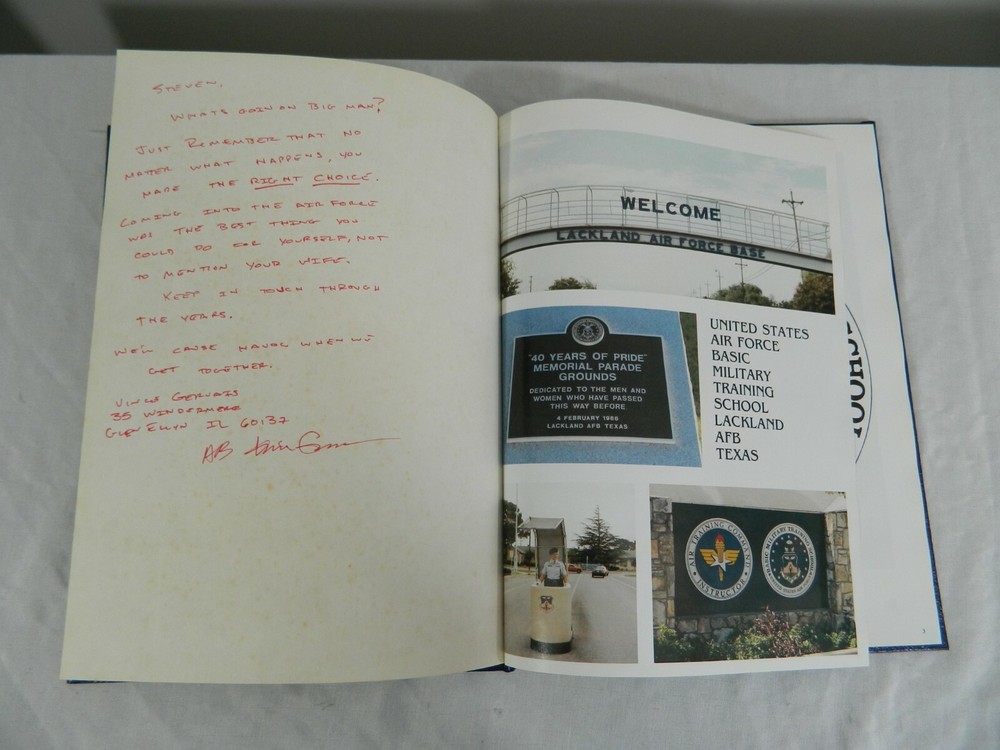 STEVEN,
WHATS GOIN ON BIG MAN?
JUST REMEMBER THAT NO
MATTER WHAT HAPPENS, YOU
MADE THE RIGHT CHOICE.
COMING INTO THE AIR FORCE
WAS THE BEST THING YOU
COULD DO FOR YOURSELF, NOT
TO MENTION YOUR WIFE.
KEEP IN TOUCH THROUGH
THE YEARS.
WE'LL CAUSE HAVOC WHEN WE
GET TOGETHER.
VINCE GERVAIS
35 WINDERMERE
GLEN ELLYN IL 60137
AB
WELCOME
LACKLAND AIR FORCE BASE
"40 YEARS OF PRIDE"
MEMORIAL PARADE
GROUNDS
DEDICATED TO THE MEN AND
WOMEN WHO HAVE PASSED
THIS WAY BEFORE
4 FEBRUARY 1986
LACKLAND AFB TEXAS
UNITED STATES
AIR FORCE
BASIC
MILITARY
TRAINING
SCHOOL
LACKLAND
AFB
TEXAS
AIR TRAINING COMMAND
INSTRUCTOR
BASIC MILITARY TRAINING SCHOOL
SCHOOL
3